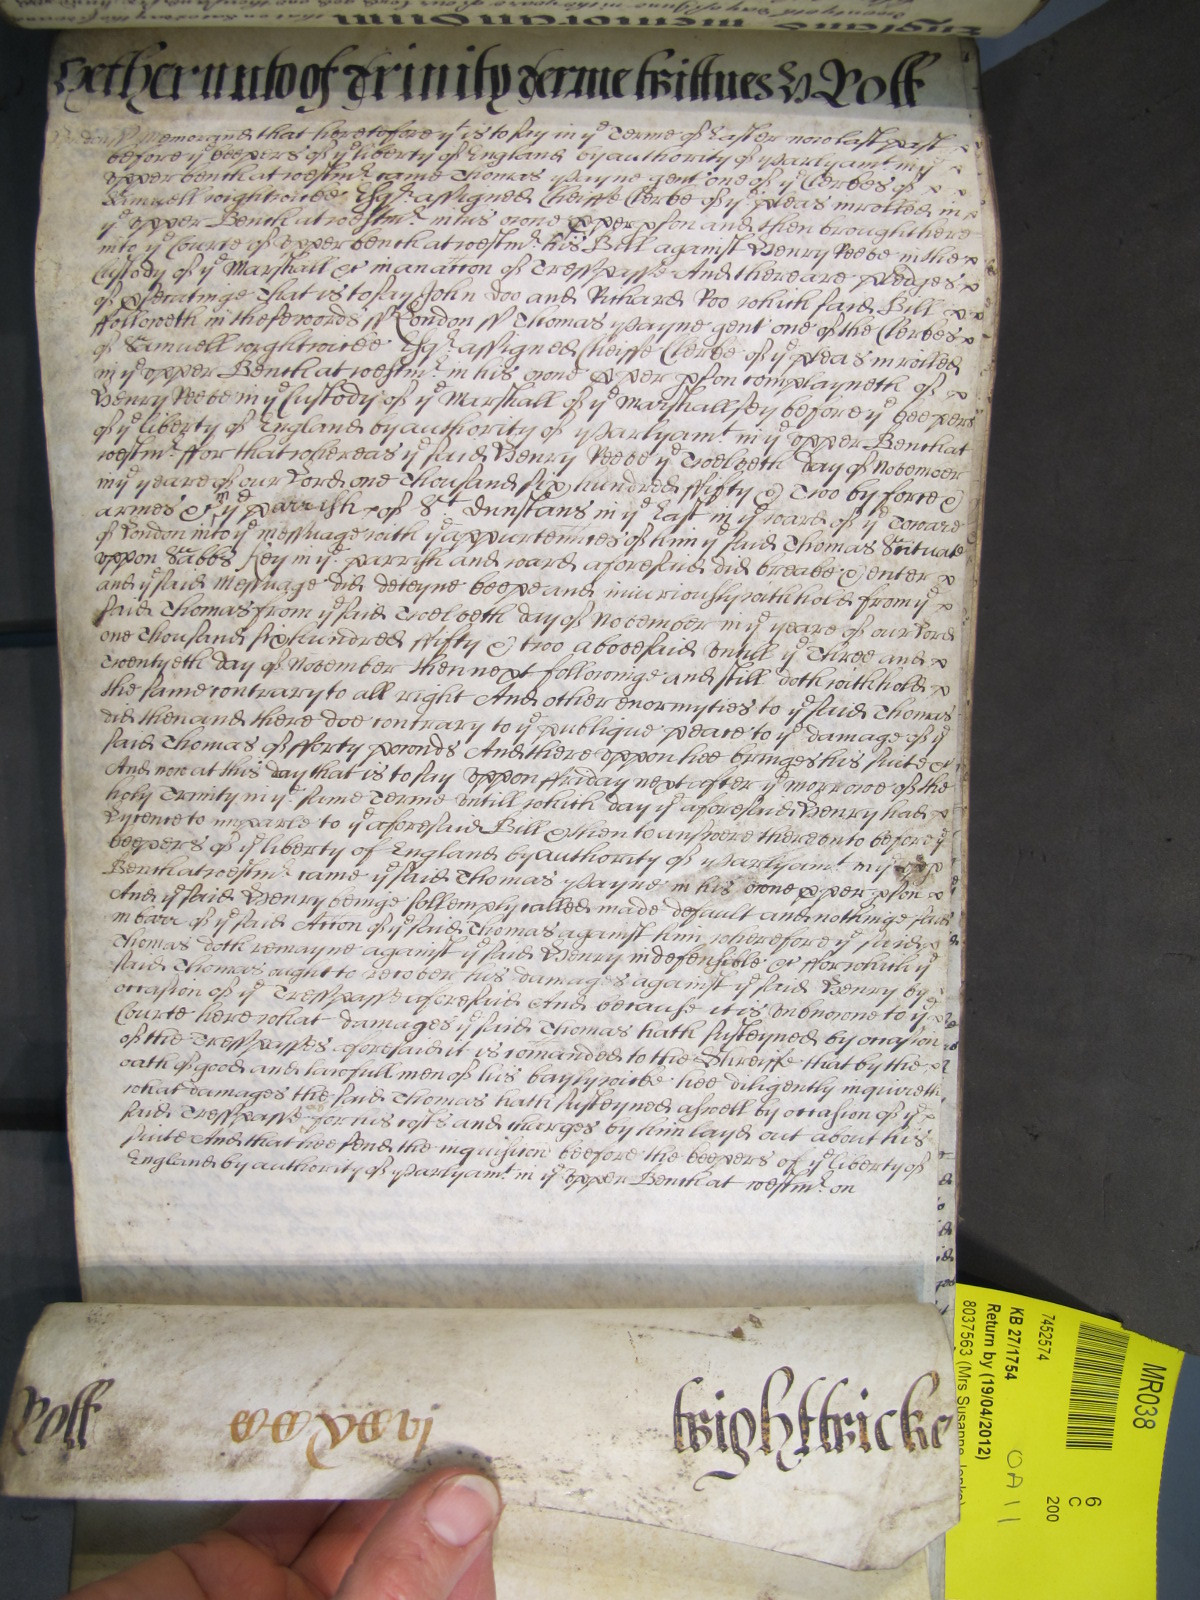 England memorandum
yet hereunto of Trinity Terme Wittnes H Roll
Memorand that heretofore yt is to say in ye Terme of Easter now last past
before ye keepers of ye liberty of England by authority of Parlyamt in ye
upper bench at westmr came Thomas Payne gent one of ye Clerkes of
Samuell wightwicke Esqr assigned Cheiffe Clerke of ye pleas inrolled in
ye upper Bench at westmr in his owne pper pson and then brought here
into ye Courte of upper bench at westmr his Bill against Henry Reeve in the
Custody of ye Marshall &c in an accon of Tresspasse And there are pledges
of psecutinge That is to say John Doo and Richard Roo which said Bill
followeth in these words ss London ss Thomas Payne gent one of the Clerkes
of Samuell wightwicke Esqr assigned Cheiffe Clerke of ye pleas inrolled
in ye upper Bench at westmr in his owne pper pson complayneth of
Henry Reeve in ye Custody of ye Marshall of ye Marshallsey before ye keepers
of ye liberty of England by authority of Parlyamt in ye upper Bench at
westmr ffor that whereas ye said Henry Reeve ye Twelveth day of November
in ye yeare of our Lord one Thousand six hundred ffifty & two by force &
armes &c in ye parrish of St Dunstans in ye East in ye ward of ye Toward
of London into ye messuage with ye appurtennces of him ye said Thomas Scituate
uppon Sabbs Key in ye parrish and ward aforesaid did breake & enter
and ye said Messuage did deteyne keepe and iniuriously withhold from ye
said Thomas from ye said Twelveth day of November in ye yeare of our Lord
one Thousand six hundred ffifty & two abovesaid untill ye Three and
Twentyeth day of November then next followinge and still doth withhold
the same contrary to all right And other enormyties to ye said Thomas
did then and there doe contrary to ye publique peace to ye damage of ye
said Thomas of fforty pownds And thereuppon hee bringes his suite &c
And now at this day that is to say uppon ffriday next after ye morrowe of the
holy Trinity in ye same Terme untill which day ye aforesaid Henry had
Lycence to imparle to ye aforesaid Bill & then to answere thereunto before ye
keepers of ye liberty of England by authority of Parlyamt in ye upp
Bench at westmr came ye said Thomas Payne in his owne pper pson
And ye said Henry beinge sollemply called made default and nothinge said
in barr of ye said Accon of ye said Thomas against him wherefore ye said
Thomas doth remayne against ye said Henry indefensible &c ffor which ye
said Thomas ought to recover his damages against ye said Henry by
occasion of ye Tresspasse aforesaid And because it is unknowne to ye
Courte here what damages ye said Thomas hath susteyned by occasion
of the Tresspasses aforesaid it is comanded to the Shreiffe that by the
oath of good and lawfull men of his baylywicke hee diligently inquireth
what damages the said Thomas hath susteyned aswell by occasion of ye
said Tresspasse as for his costs and charges by him layd out about his
suite And that hee send the inquisicon beefore the keepers of ye liberty of
England by authority of Parlyamt in ye upper Bench at westmr on
Roll
wightwicke
MR038
6
C
200
7452574
KB 27/1754
Return by (19/04/2012)
8037563 (Mrs Susanne